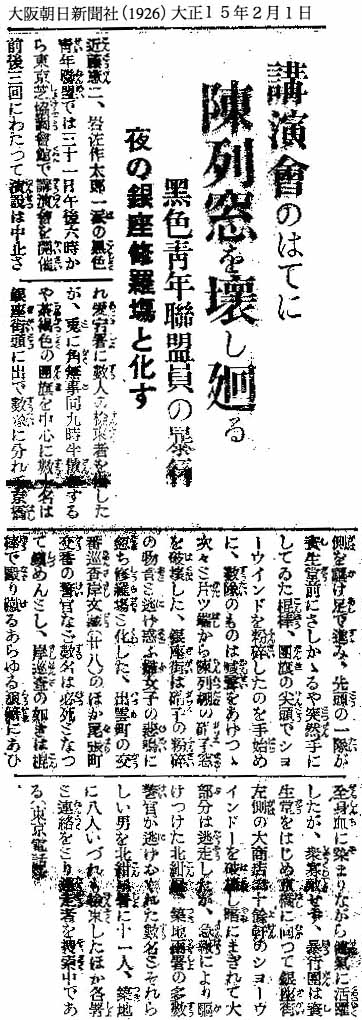 大阪朝日新聞社(1926)大正15年2月1日
講演會のはてに
陳列窓を壊し廻る
黑色靑年聯盟員の暴行
夜の銀座修羅場と化す
近藤憲二、岩佐作太郎一派の黑色
靑年聯盟では三十一日午後六時か
ら東京芝協調會館で講演會を開催
前後三回にわたつて演說は中止さ
れ愛宕署に數人の檢束者を出した
が、兎に角無事同九時半散會する
や茶褐色の團旗を中心に數十名は
銀座街頭に出で數隊に分れ京橋
側を駈け足で進み、先頭の一隊が
資生堂前にさしかゝるや突然手に
してゐた棍棒、團旗の尖頭でショ
ーウインドを粉碎したのを手始め
に、數隊のものは喊聲をあげつゝ
次々と片ツ端から陳列棚の硝子窓
を破壞した、銀座街は硝子の粉碎
の物音と逃げ惑ふ婦女子の悲鳴に
忽ち修羅場と化した、出雲町の交
番巡査岸文藏(廿八)のほか尾張町
交番の警官など數名は必死となつ
て鎭めんとし、岸巡査の如きは混
棒で毆り蹴るあらゆる暴行にあひ
至身血に染まりながら勇敢に活躍
したが、衆寡敵せず、暴行團は資
生堂をはじめ京橋に向つて銀座街
左側の大商店約十餘軒のショーウ
インドーを破壞し暗にまぎれて大
部分は逃走したが、急報により駈
けつけた北紺屋、築地兩署の多數
警官が逃げおくれた數名とそれら
しい男を北紺屋署に十一人、築地
に八人いづれも檢束したほか各署
と連絡をとり逃走者を搜索中であ
る(東京電話)